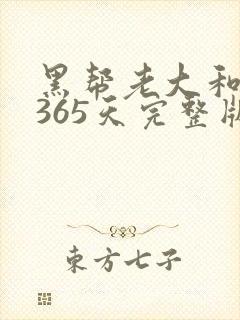 黑帮老大和
365天完整版
東方七子